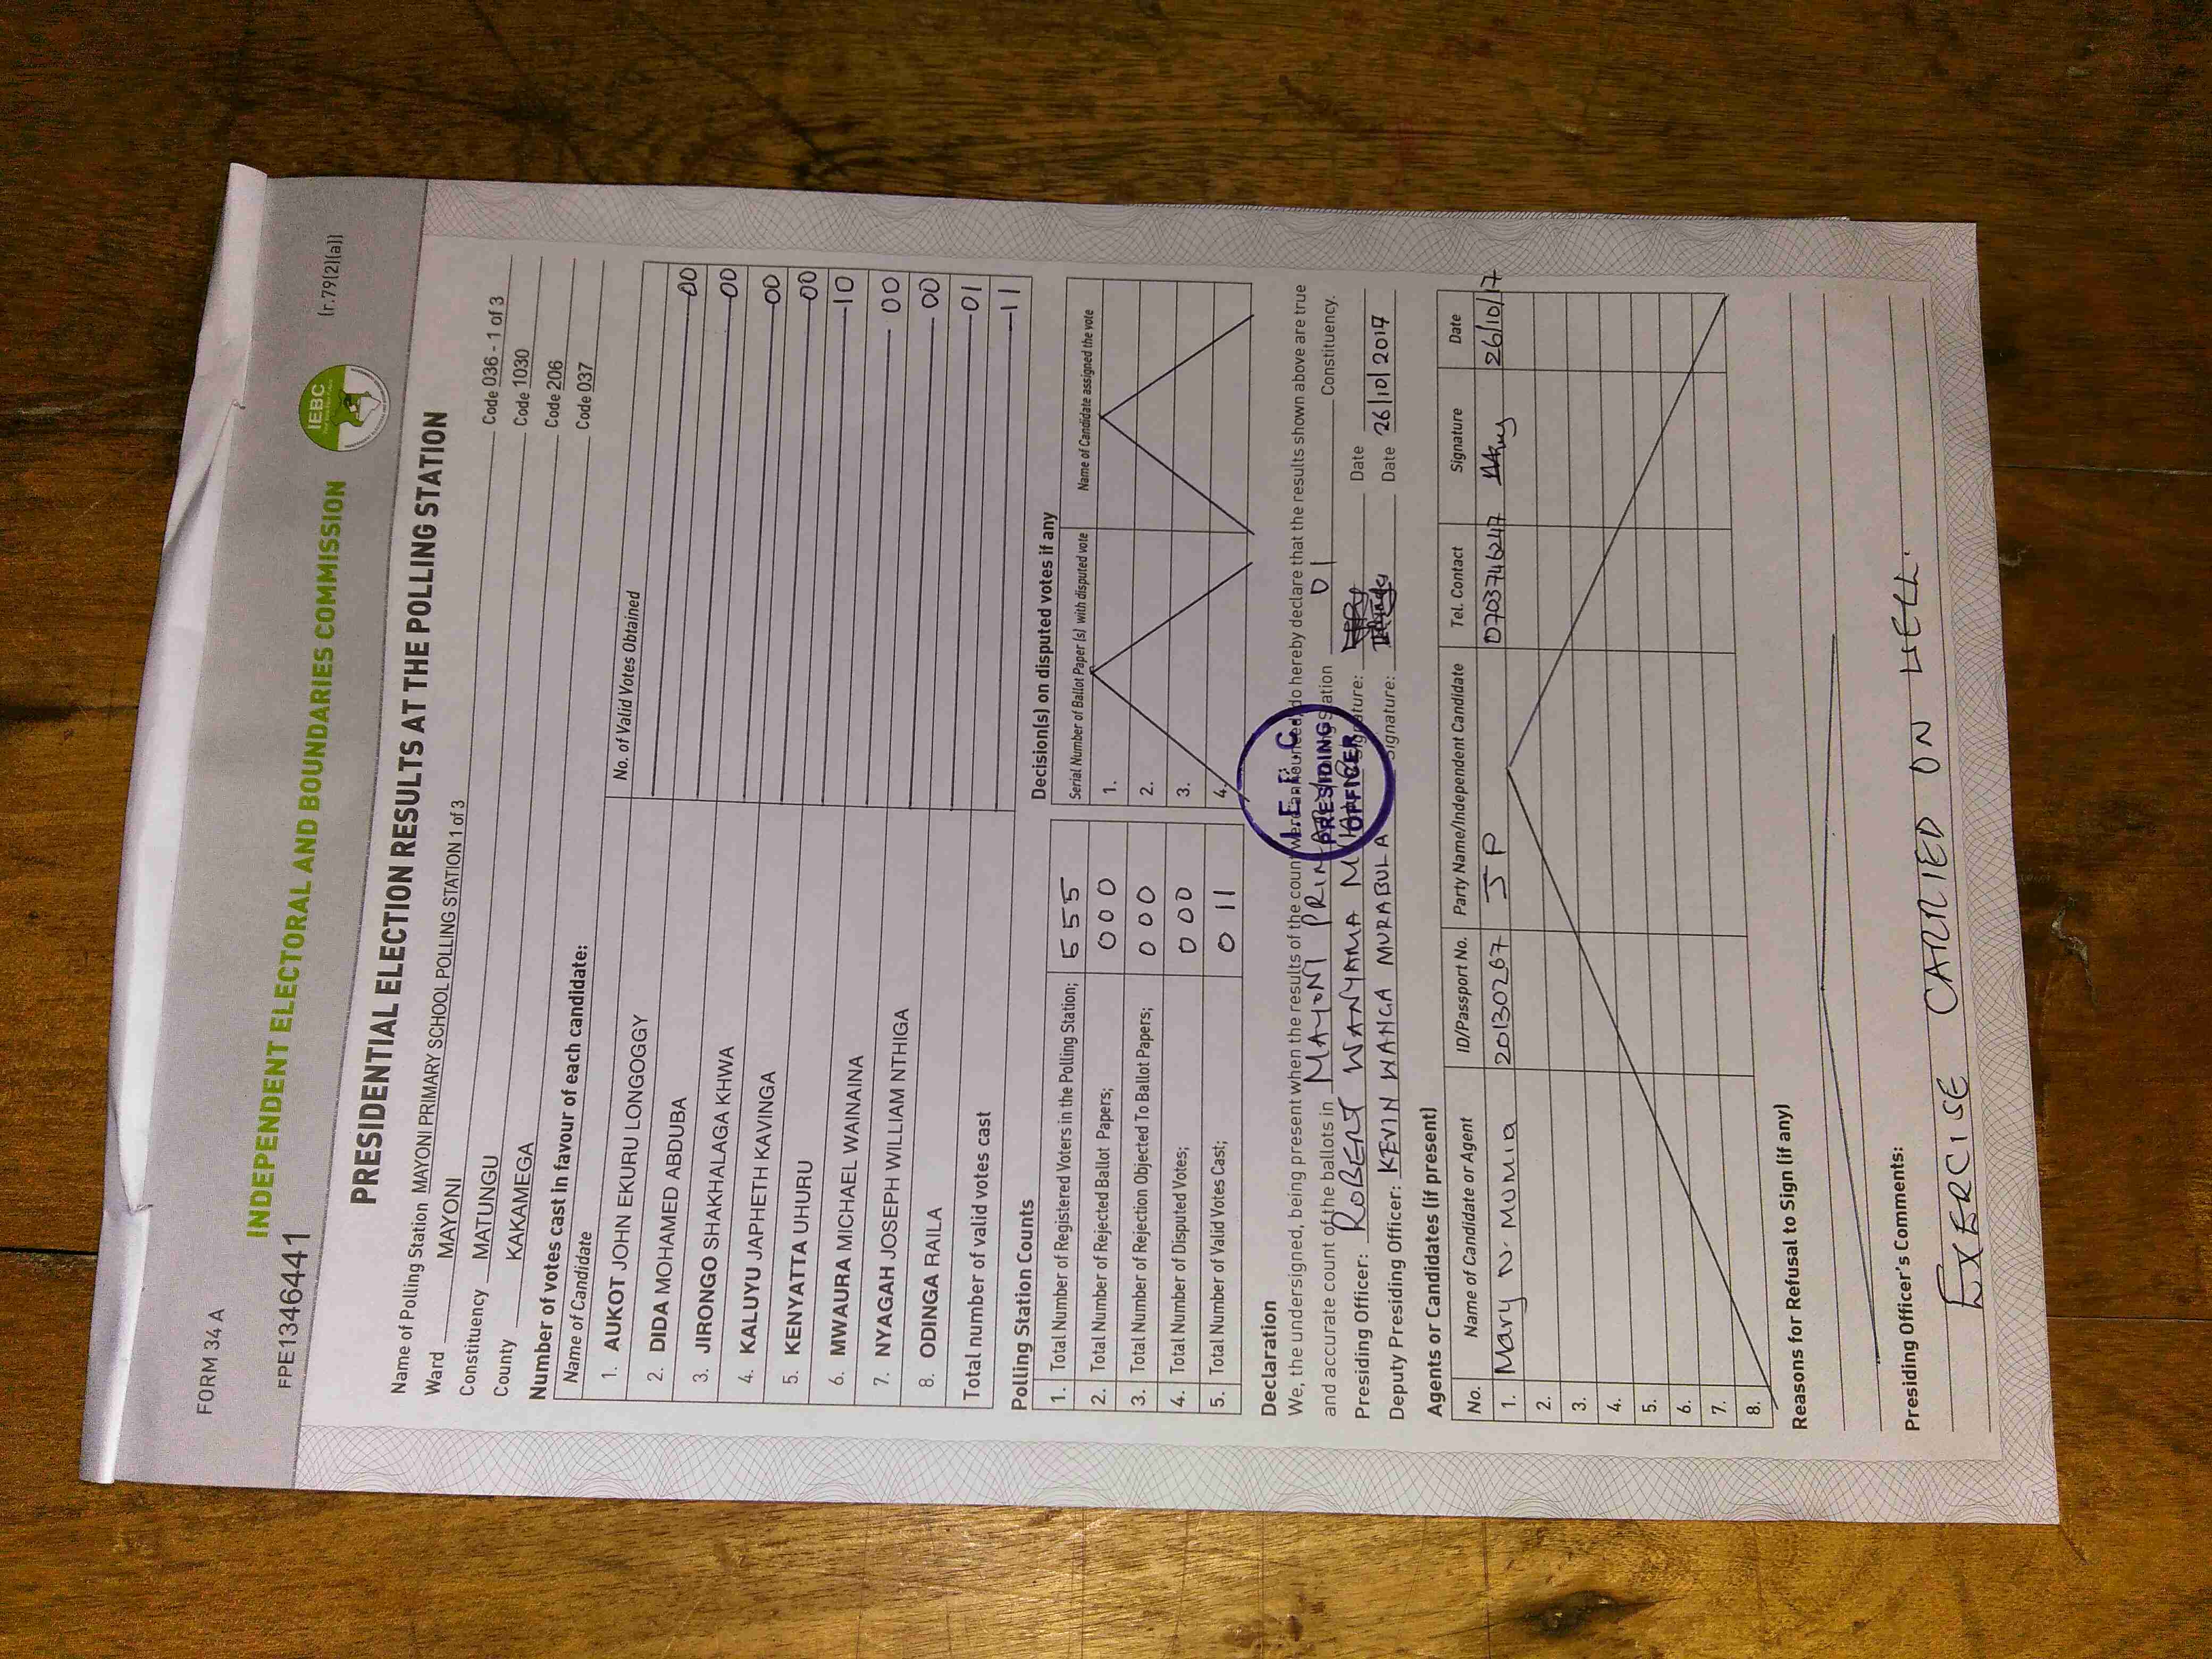 FORM 34 A
(r.79(2)(a))
FPE1346441
INDEPENDENT ELECTORAL AND BOUNDARIES COMMISSION
IEBC
PRESIDENTIAL ELECTION RESULTS AT THE POLLING STATION
Name of Polling Station MAYONI PRIMARY SCHOOL POLLING STATION 1 of 3 Code 036 - 1 of 3
Ward MAYONI Code 1030
Constituency MATUNGU Code 206
County KAKAMEGA Code 037
Number of votes cast in favour of each candidate:
Name of Candidate No. of Valid Votes Obtained
1. AUKOT JOHN EKURU LONGOGGY 00
2. DIDA MOHAMED ABDUBA 00
3. JIRONGO SHAKHALAGA KHWA 00
4. KALUYU JAPHETH KAVINGA 00
5. KENYATTA UHURU 10
6. MWAURA MICHAEL WAINAINA 00
7. NYAGAH JOSEPH WILLIAM NTHIGA 00
8. ODINGA RAILA 01
Total number of valid votes cast 11
Polling Station Counts
1. Total Number of Registered Voters in the Polling Station; 555
2. Total Number of Rejected Ballot Papers; 000
3. Total Number of Rejection Objected To Ballot Papers; 000
4. Total Number of Disputed Votes; 000
5. Total Number of Valid Votes Cast; 011
Decision(s) on disputed votes if any
Serial Number of Ballot Paper (s) with disputed vote Name of Candidate assigned the vote
1.
2.
3.
4.
Declaration
We, the undersigned, being present when the results of the count were announced, do hereby declare that the results shown above are true
and accurate count of the ballots in MAYONI PRIMARY Station 01 Constituency.
Presiding Officer: ROBERT WANYAMA Signature: Date
Deputy Presiding Officer: KEVIN WANGA MURABULA Signature: Date 26/10/2017
I.E.B.C.
PRESIDING
OFFICER
Agents or Candidates (if present)
No. Name of Candidate or Agent ID/Passport No. Party Name/Independent Candidate Tel. Contact Signature Date
1. Mary N. Mumia 20130267 JP 0703746247 Mary 26/10/17
2.
3.
4.
5.
6.
7.
8.
Reasons for Refusal to Sign (if any)
Presiding Officer's Comments:
EXERCISE CARRIED ON WELL.